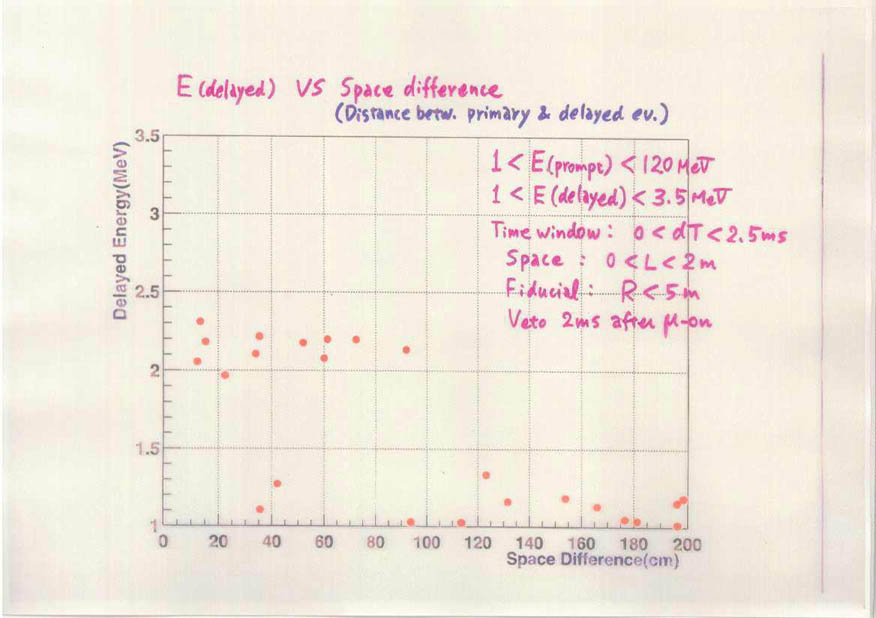 E (delayed) VS Space difference
(Distance betw. primary & delayed ev.)
1 < E(prompt) < 120 MeV
1 < E (delayed) < 3.5 MeV
Time window : 0 < dT < 2.5ms
Space : 0 < L < 2m
Fiducial : R < 5m
Veto 2ms after μ-on
Delayed Energy(MeV)
3.5
3
2.5
2
1.5
1
0 20 40 60 80 100 120 140 160 180 200
Space Difference(cm)